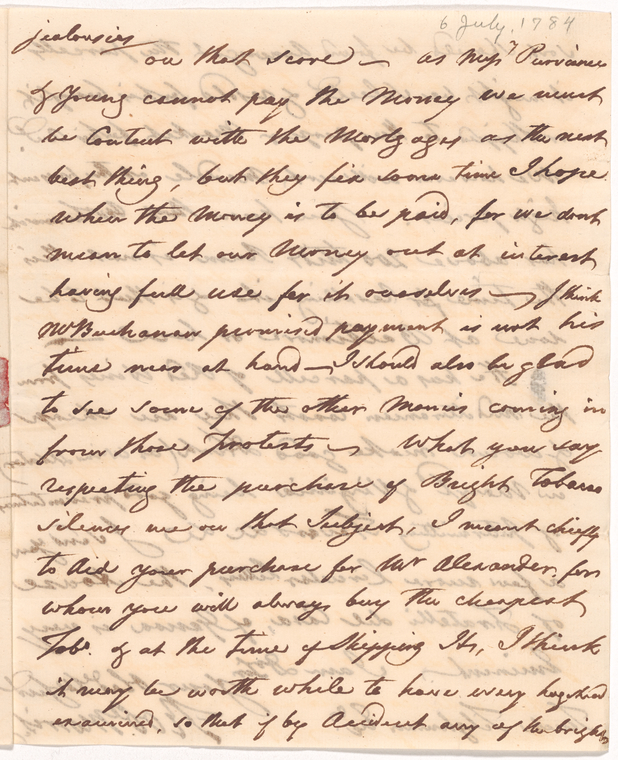 6 July, 1784
jealousies
on that score — as Messrs Purviance
& Young cannot pay the Money we must
be Content with the Mortgages as the next
best thing, but they fix some time I hope
when the Money is to be paid, for we dont
mean to let our Money out at interest
having full use for it ourselves — I think
Mr Buchanan promised payment is not his
time near at hand — I should also be glad
to see some of the other Monies coming in
from those Protests — What you say
respecting the purchase of Bright Tobacco
silences me on that Subject, I meant chiefly
to Aid your purchase for Mr Alexander, for
whom you will always buy the cheapest
Tobo. & at the time of Shipping Its, I think
it may be worth while to have every hogshead
examined, so that if by Accident any of the bright